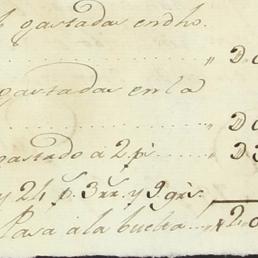 gastadas en dho.
„ D0
gastadas en la
„ D0
gastado a 2 p.s „ D3
y 24 p. 3 rr. y 9 grs.
Pasa a la buelta „ 120